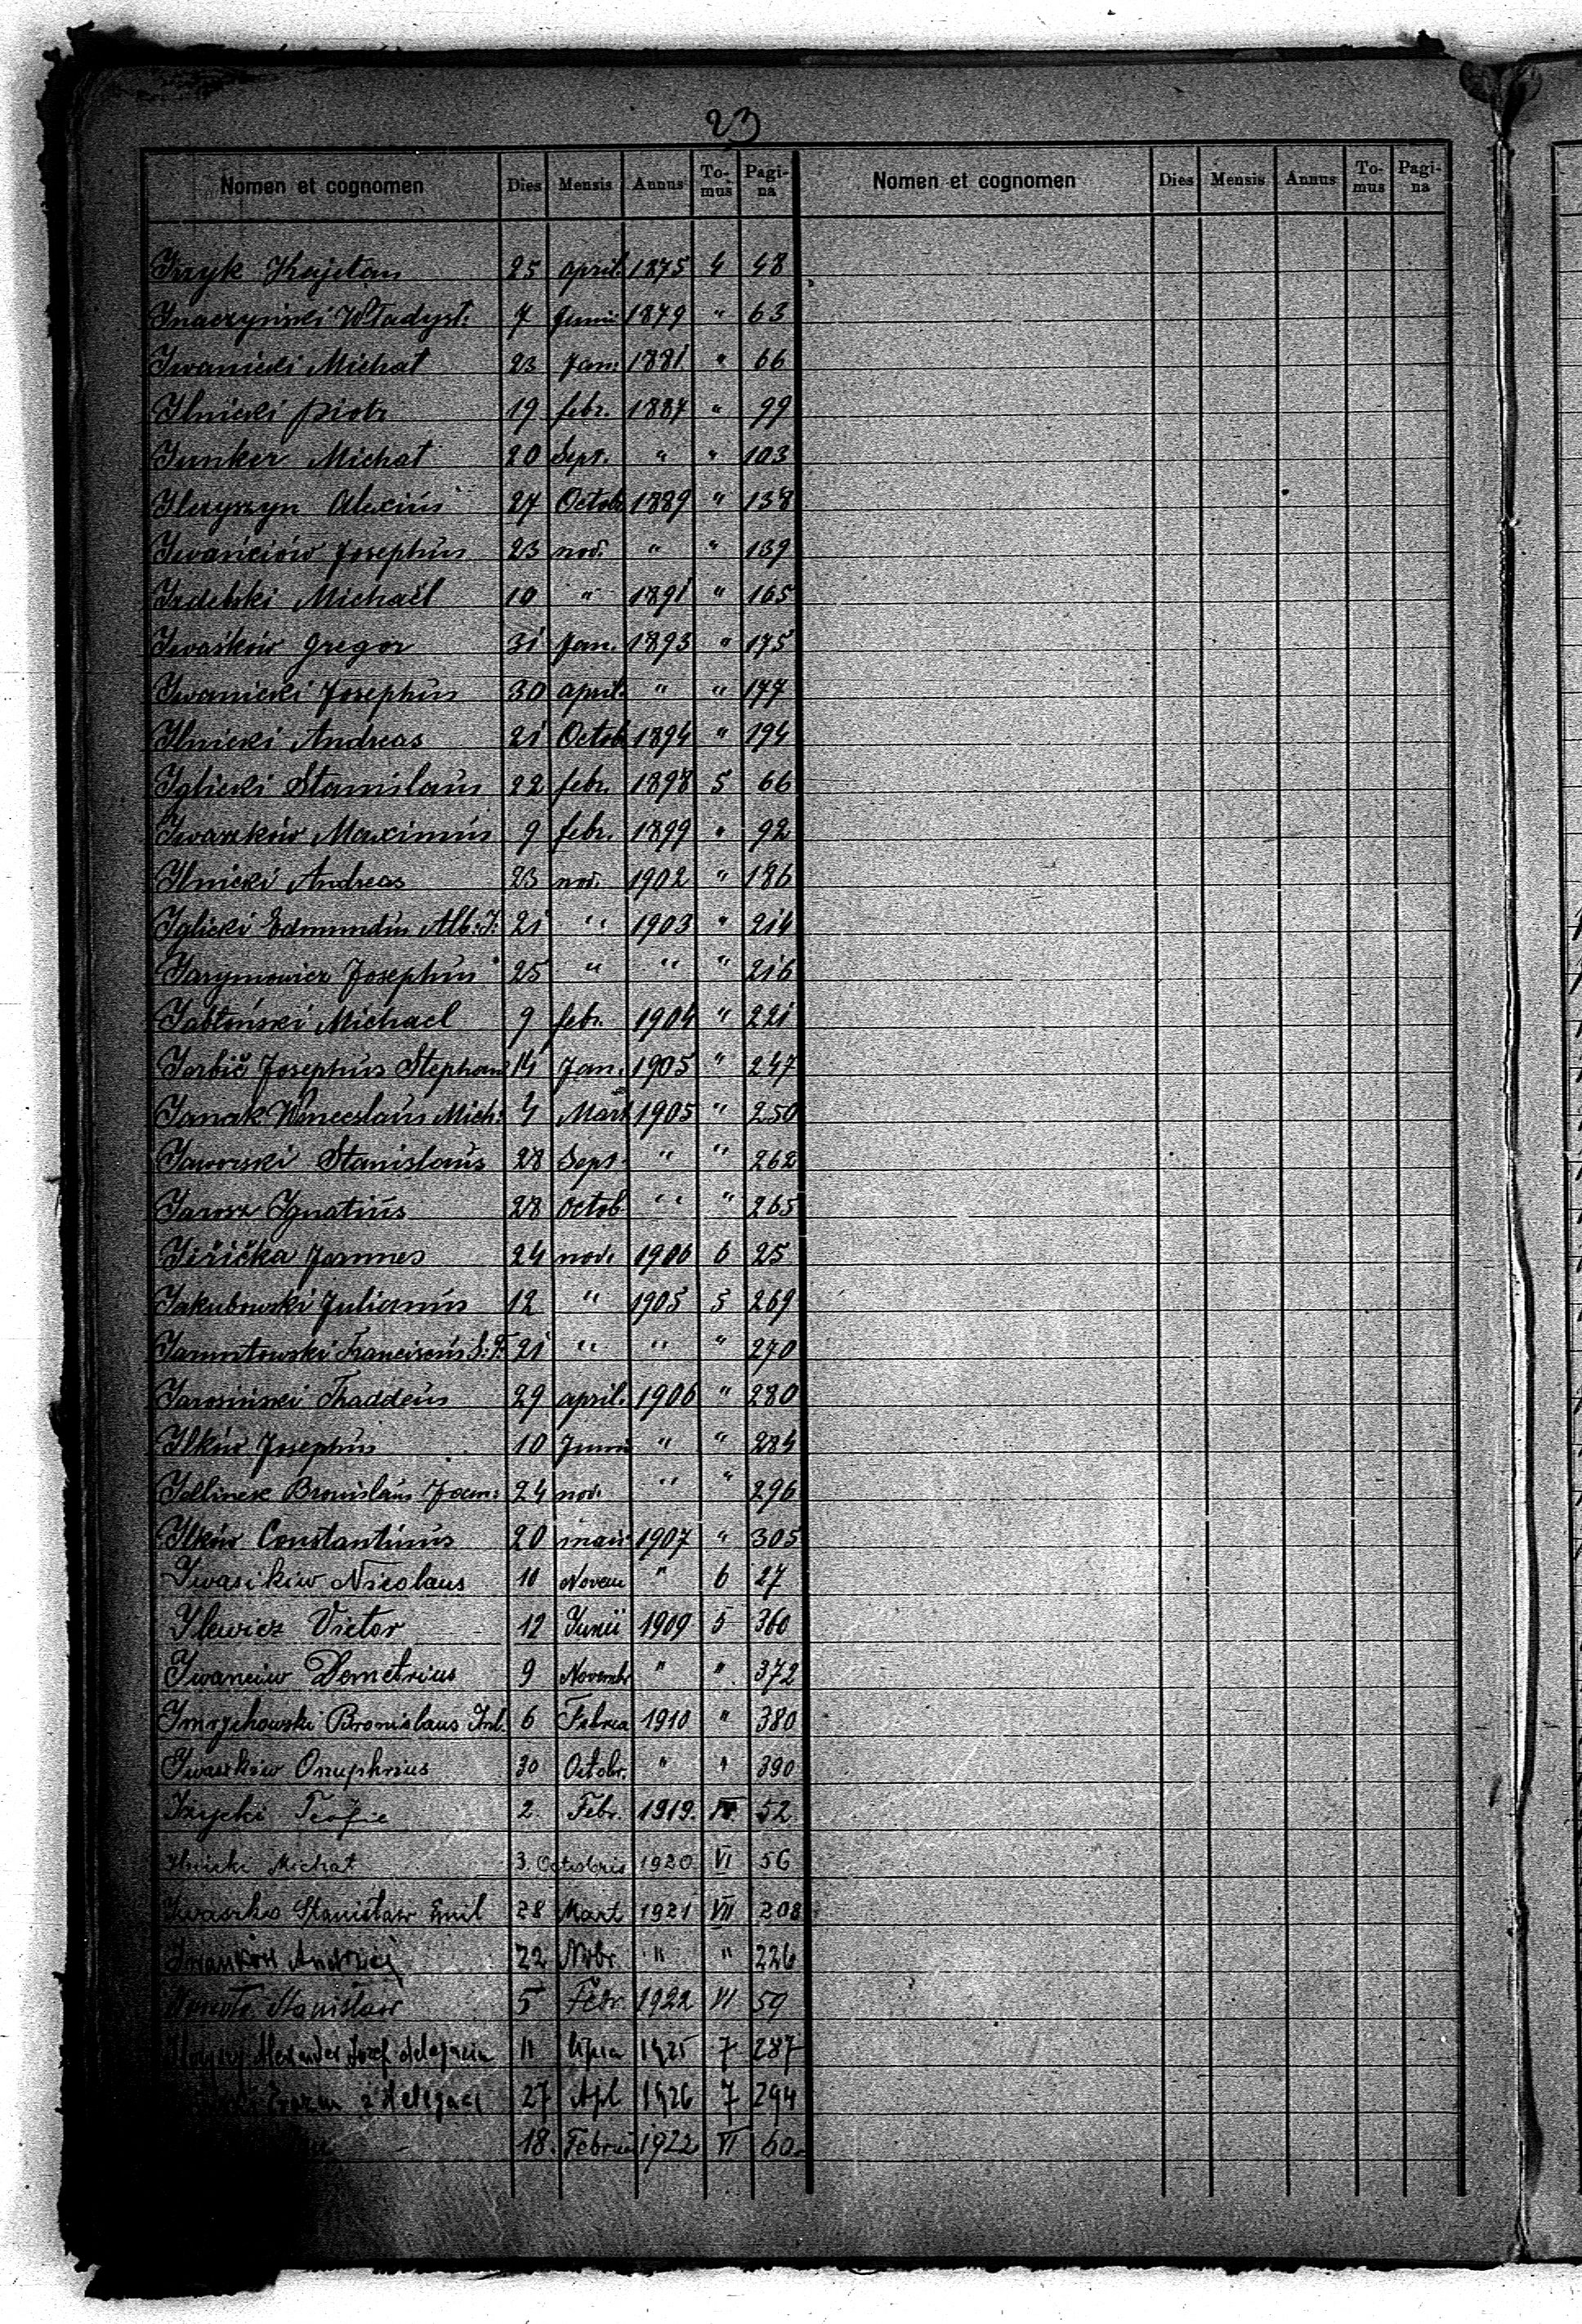 23
Nomen et cognomen Dies Mensis Annus To-mus Pagi-na Nomen et cognomen Dies Mensis Annus To-mus Pagi-na
Irzyk Kajetan 25 april. 1875 4 48
Inaczyński Władysł. 7 Junii 1879 " 63
Iwanicki Michał 23 Jan. 1881 " 66
Ilnicki Piotr 19 febr. 1887 " 99
Junker Michał 20 Sept. " " 103
Ilczyszyn Alexius 27 Octob 1889 " 138
Iwańciów Josephus 23 nov. " " 139
Izdebski Michaël 10 " 1891 " 165
Iwaśków Gregor 31 Jan. 1893 " 175
Iwanicki Josephus 30 april. " " 177
Ilnicki Andreas 21 Octob 1894 " 194
Iglicki Stanislaus 22 febr. 1898 5 66
Iwaszków Maximus 9 febr. 1899 " 92
Ilnicki Andreas 23 nov. 1902 " 186
Iglicki Edmundus Alb: J: 21 " 1903 " 214
Jarymowicz Josephus 25 " " " 216
Jabłoński Michael 9 febr. 1904 " 221
Josephus Stephan 14 Jan. 1905 " 247
Janak Wenceslaus Mich: 4 Mart 1905 " 250
Jaworski Stanislaus 28 Sept. " " 262
Jarosz Ignatius 28 Octob " " 265
Jiřička Joannes 24 nov. 1906 6 25
Jakubowski Julianus 12 " 1905 5 269
Franciscus S. F. 21 " " " 270
Jarosiński Thaddeus 29 april. 1906 " 280
Ilków Josephus 10 Junii " " 284
Jellinek Bronislaus Joan: 24 nov. " " 296
Ilków Constantinus 20 maii 1907 " 305
Iwasikiw Nicolaus 10 Novem " 6 27
Ilewicz Victor 12 Junii 1909 5 360
Iwanciw Demetrius 9 Novembr " " 372
Bronislaus 6 Febrea 1910 " 380
Iwaszkiw Onuphrius 30 Octobr. " " 390
Izycki 2. Febr. 1919. IV. 52
Ilnicki Michał 3. Octobris 1920 VI 56
Iwaszko Stanisław Emil 28 Mart 1921 VII 208
Iwanków Andrzej 22 Nvbr. " " 226
Stanisław 5 Febr. 1922 VI 59
Alexander Józef delegacia 11 1925 7 287
27 Apl 1926 7 294
18. Februa 1922 VI 60.